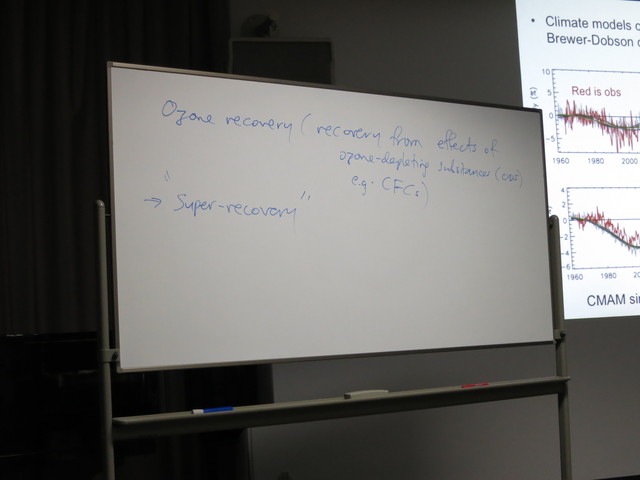 Ozone recovery ( recovery from effects of
ozone-depleting substances (ODS)
e.g. CFCs)
→ "Super-recovery"
• Climate models
Brewer-Dobson
10
5
0
-5
Red is obs
1960 1980 2000
4
2
0
-2
-4
-6
1960 1980
CMAM